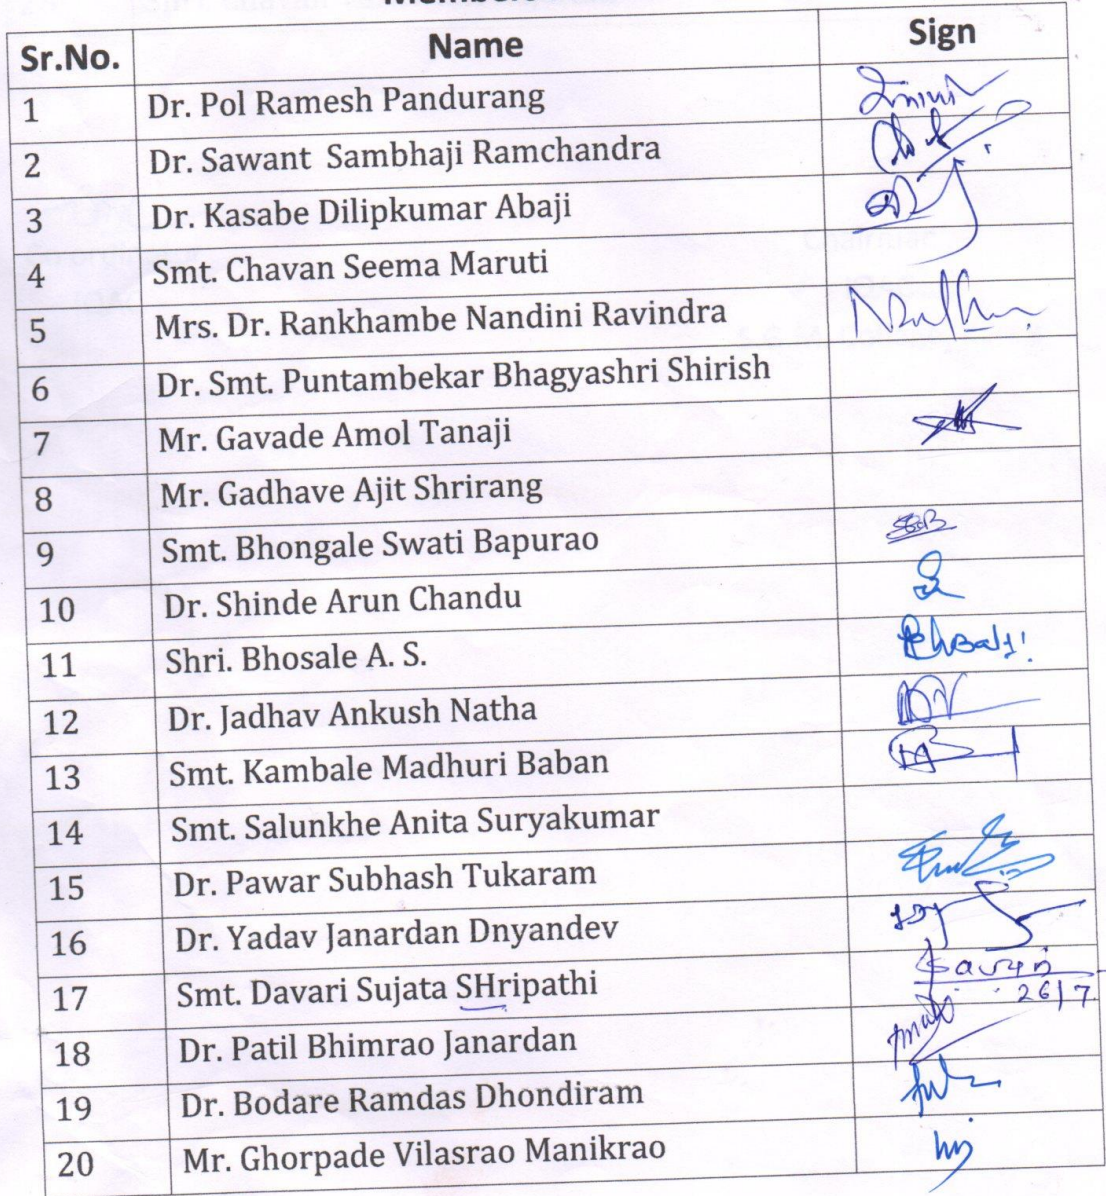 Sr.No. Name Sign
1 Dr. Pol Ramesh Pandurang
2 Dr. Sawant Sambhaji Ramchandra
3 Dr. Kasabe Dilipkumar Abaji
4 Smt. Chavan Seema Maruti
5 Mrs. Dr. Rankhambe Nandini Ravindra
6 Dr. Smt. Puntambekar Bhagyashri Shirish
7 Mr. Gavade Amol Tanaji
8 Mr. Gadhave Ajit Shrirang
9 Smt. Bhongale Swati Bapurao
10 Dr. Shinde Arun Chandu
11 Shri. Bhosale A. S.
12 Dr. Jadhav Ankush Natha
13 Smt. Kambale Madhuri Baban
14 Smt. Salunkhe Anita Suryakumar
15 Dr. Pawar Subhash Tukaram
16 Dr. Yadav Janardan Dnyandev
17 Smt. Davari Sujata SHripathi 26|7
18 Dr. Patil Bhimrao Janardan
19 Dr. Bodare Ramdas Dhondiram
20 Mr. Ghorpade Vilasrao Manikrao